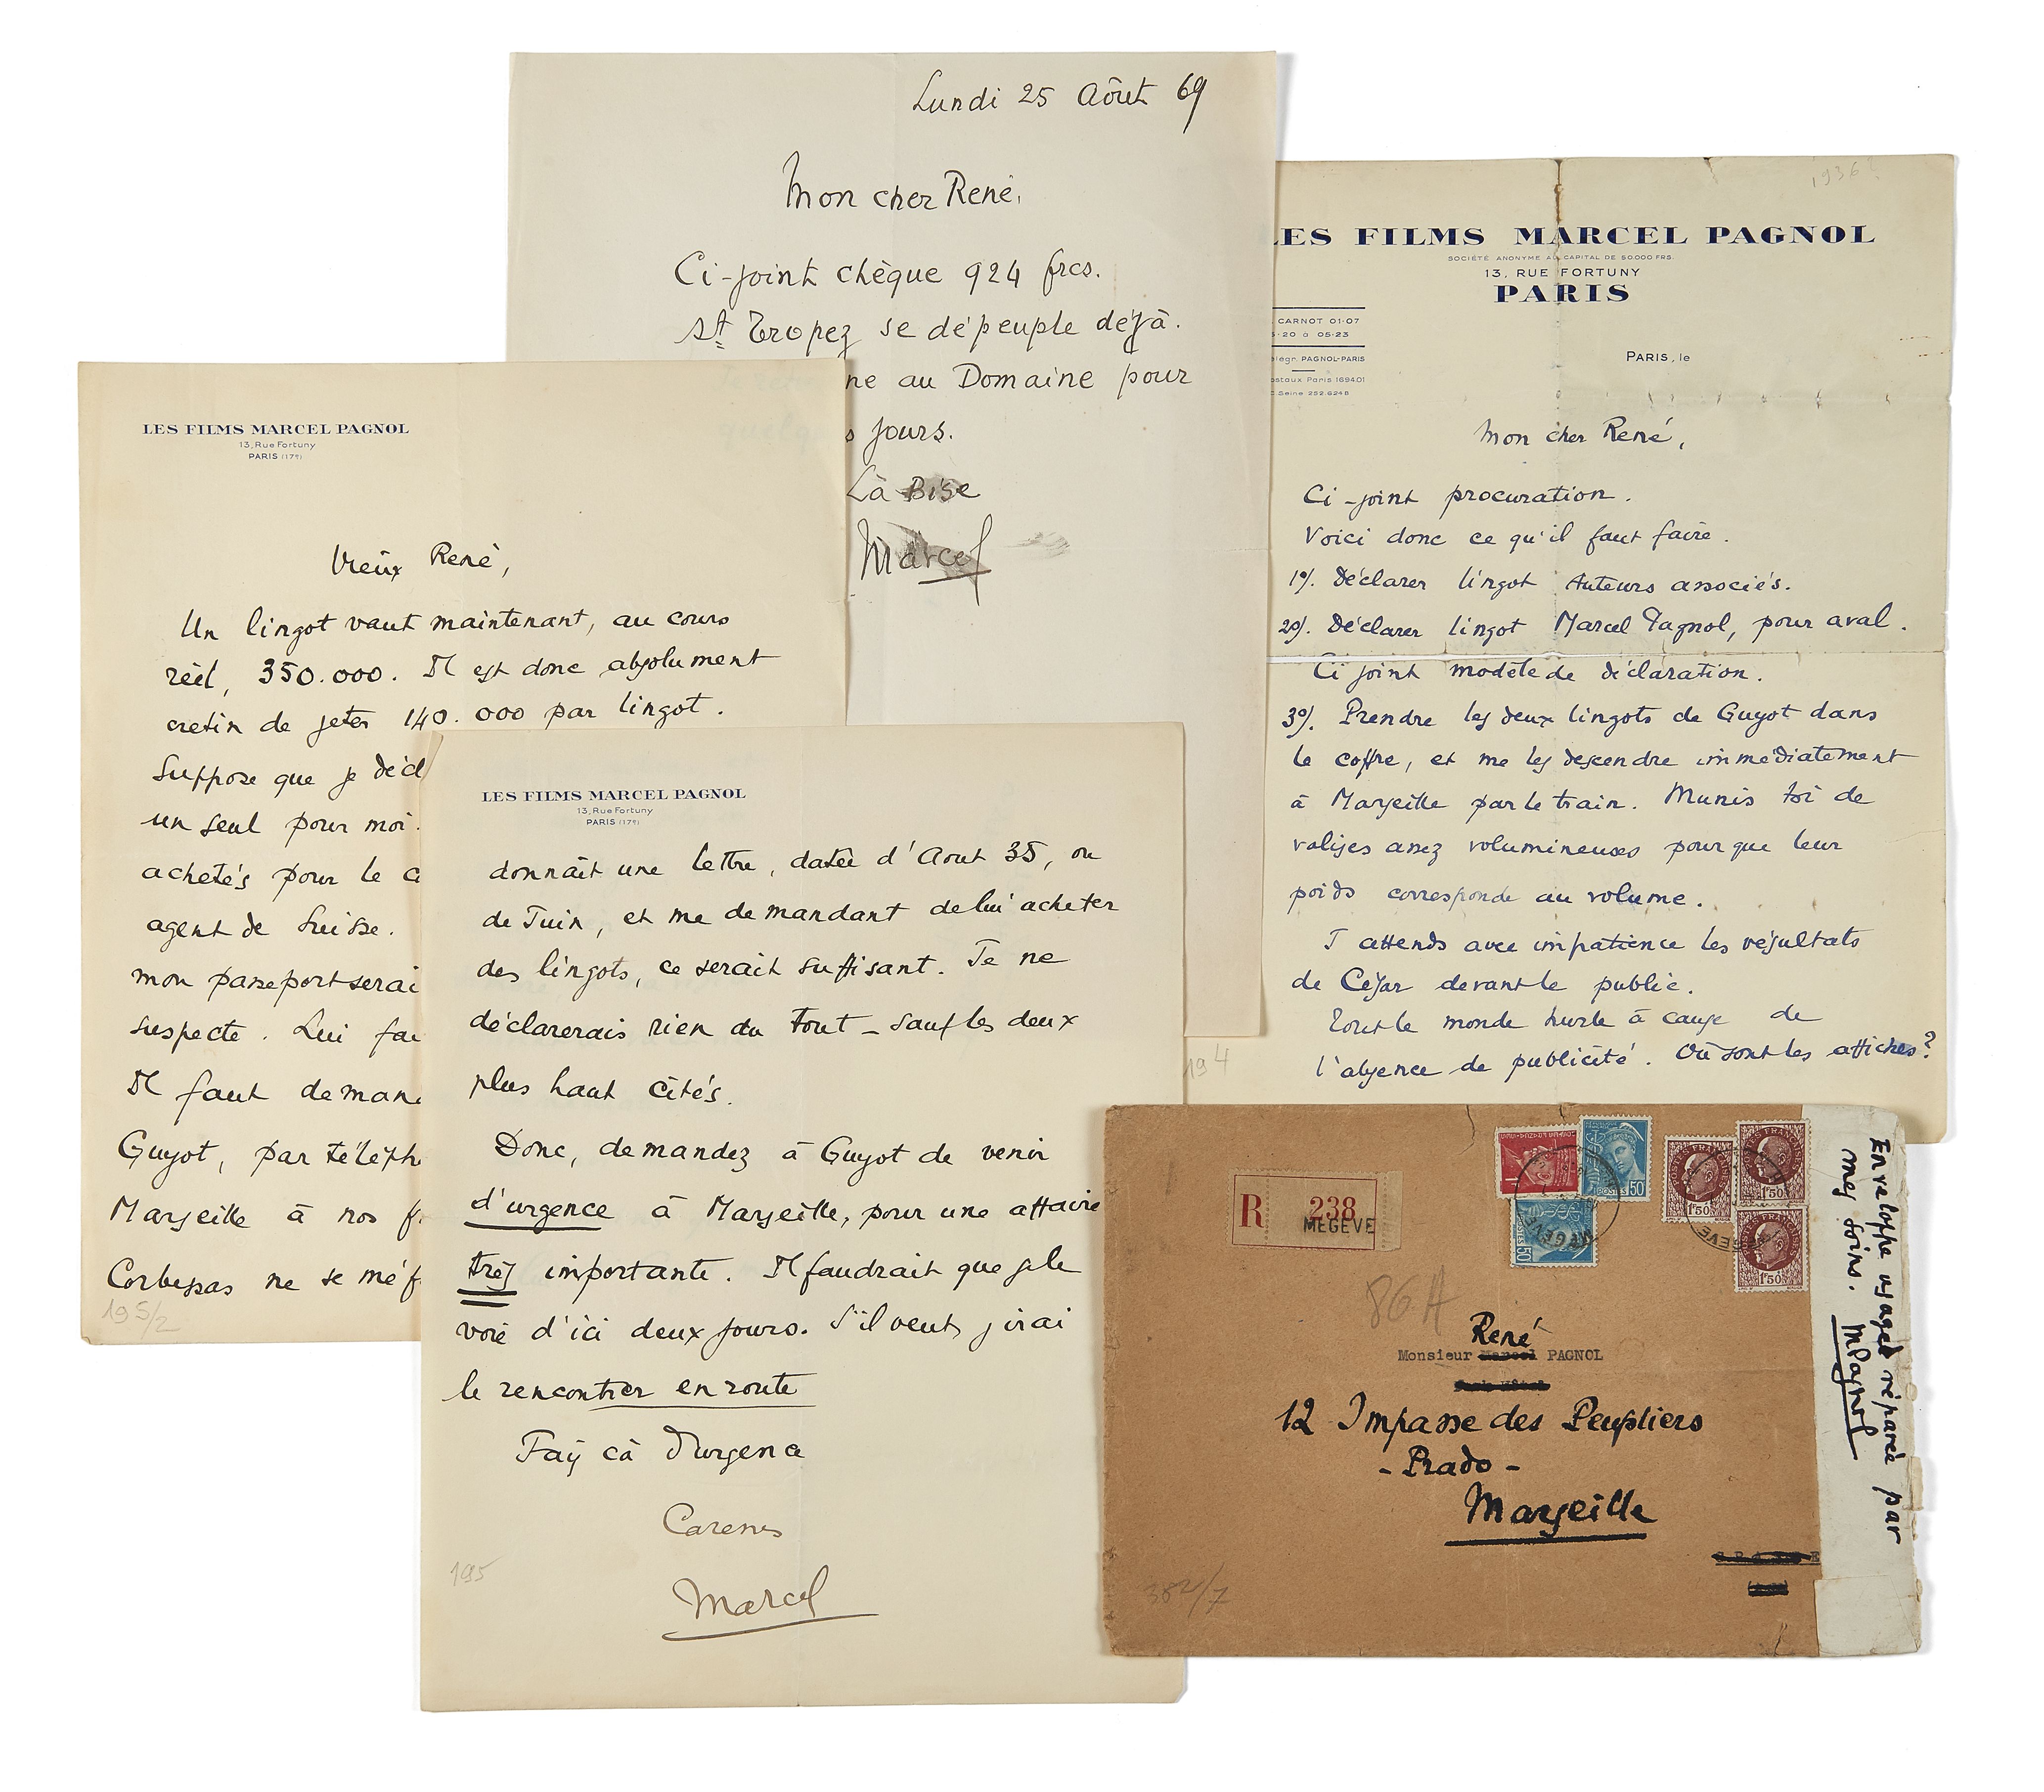 Lundi 25 Aôut 69
Mon cher René,
Ci-joint chèque 924 frcs.
St Tropez se dépeuple déjà.
ne au Domaine pour
s jours.
Là Bise
Marcel
1936?
LES FILMS MARCEL PAGNOL
SOCIÉTÉ ANONYME AU CAPITAL DE 50.000 FRS.
13, RUE FORTUNY
PARIS
CARNOT 01-07
-20 à 05-23
légr. PAGNOL-PARIS
ostaux Paris 1694.01
Seine 292.624 B
PARIS, le
Mon cher René,
Ci-joint procuration.
Voici donc ce qu'il faut faire.
1°/. Déclarer lingot Auteurs associés.
2°/. Déclarer lingot Marcel Pagnol, pour aval.
Ci joint modèle de déclaration.
3°/. Prendre les deux lingots de Guyot dans
le coffre, et me les descendre immédiatement
à Marseille par le train. Munis toi de
valises assez volumineuses pour que leur
poids corresponde au volume.
J'attends avec impatience les résultats
de César devant le public.
Tout le monde hurle à cause de
l'absence de publicité. Où sont les affiches?
194
LES FILMS MARCEL PAGNOL
13, Rue Fortuny
PARIS (17e)
Vieux René,
Un lingot vaut maintenant, au cours
réel, 350.000. Il est donc absolument
crétin de jeter 140.000 par lingot.
Suppose que je décl
un seul pour moi.
achetés pour le c
agent de Suisse.
mon passeport serai
suspecte. Lui fai
Il faut deman
Guyot, par téléph
Marseille à nos f
Corbessas ne se méf
195/2
LES FILMS MARCEL PAGNOL
13, Rue Fortuny
PARIS (17e)
donnait une lettre, datée d'Aout 35, ou
de Juin, et me demandant de lui acheter
des lingots, ce serait suffisant. Je ne
déclarerais rien du tout - sauf les deux
plus haut cités.
Donc, demandez à Guyot de venir
d'urgence à Marseille, pour une affaire
très importante. Il faudrait que je le
voie d'ici deux jours. S'il veut, j'irai
le rencontrer en route
Fais cà d'urgence
Caresses
Marcel
195
R 238
MEGÈVE
POSTES FRANÇAISES
1F50
86 A
René
Monsieur Marcel PAGNOL
12 Impasse des Peupliers
- Prado -
Marseille
382/7
Enveloppe usagée réparée par
mes soins. MPagnol